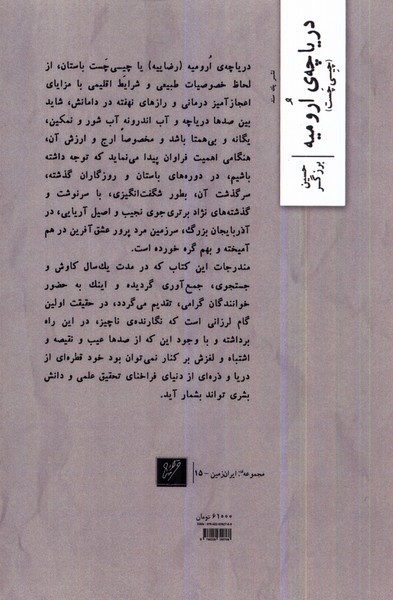 دریاچه‌ی اُرومیه
(چیسی‌چست)
حسین برزگر
دریاچه‌ی اُرومیه (رضاییه) یا چیسی‌چَست باستان، از
لحاظ خصوصیات طبیعی و شرایط اقلیمی با مزایای
اعجازآمیز درمانی و رازهای نهفته در دامانش، شاید
بین صدها دریاچه و آب اندرونه آب شور و نمکین،
یگانه و بی‌همتا باشد و مخصوصاً ارج و ارزش آن،
هنگامی اهمیت فراوان پیدا می‌نماید که توجه داشته
باشیم، در دوره‌های باستان و روزگاران گذشته،
سرگذشت آن، بطور شگفت‌انگیزی، با سرنوشت و
گذشته‌های نژاد برتری‌جوی نجیب و اصیل آریایی، در
آذربایجان بزرگ، سرزمین مرد پرور عشق‌آفرین در هم
آمیخته و بهم گره خورده است.
مندرجات این کتاب که در مدت یك‌سال کاوش و
جستجوی، جمع‌آوری گردیده و اینك به حضور
خوانندگان گرامی، تقدیم می‌گردد، در حقیقت اولین
گام لرزانی است که نگارنده‌ی ناچیز، در این راه
برداشته و با وجود این که از صدها عیب و نقیصه و
اشتباه و لغزش بر کنار نمی‌توان بود خود قطره‌ای از
دریا و ذره‌ای از دنیای فراخنای تحقیق علمی و دانش
بشری تواند بشمار آید.
مجموعه ایران‌زمین - ۱۵
۶۱۰۰۰ تومان